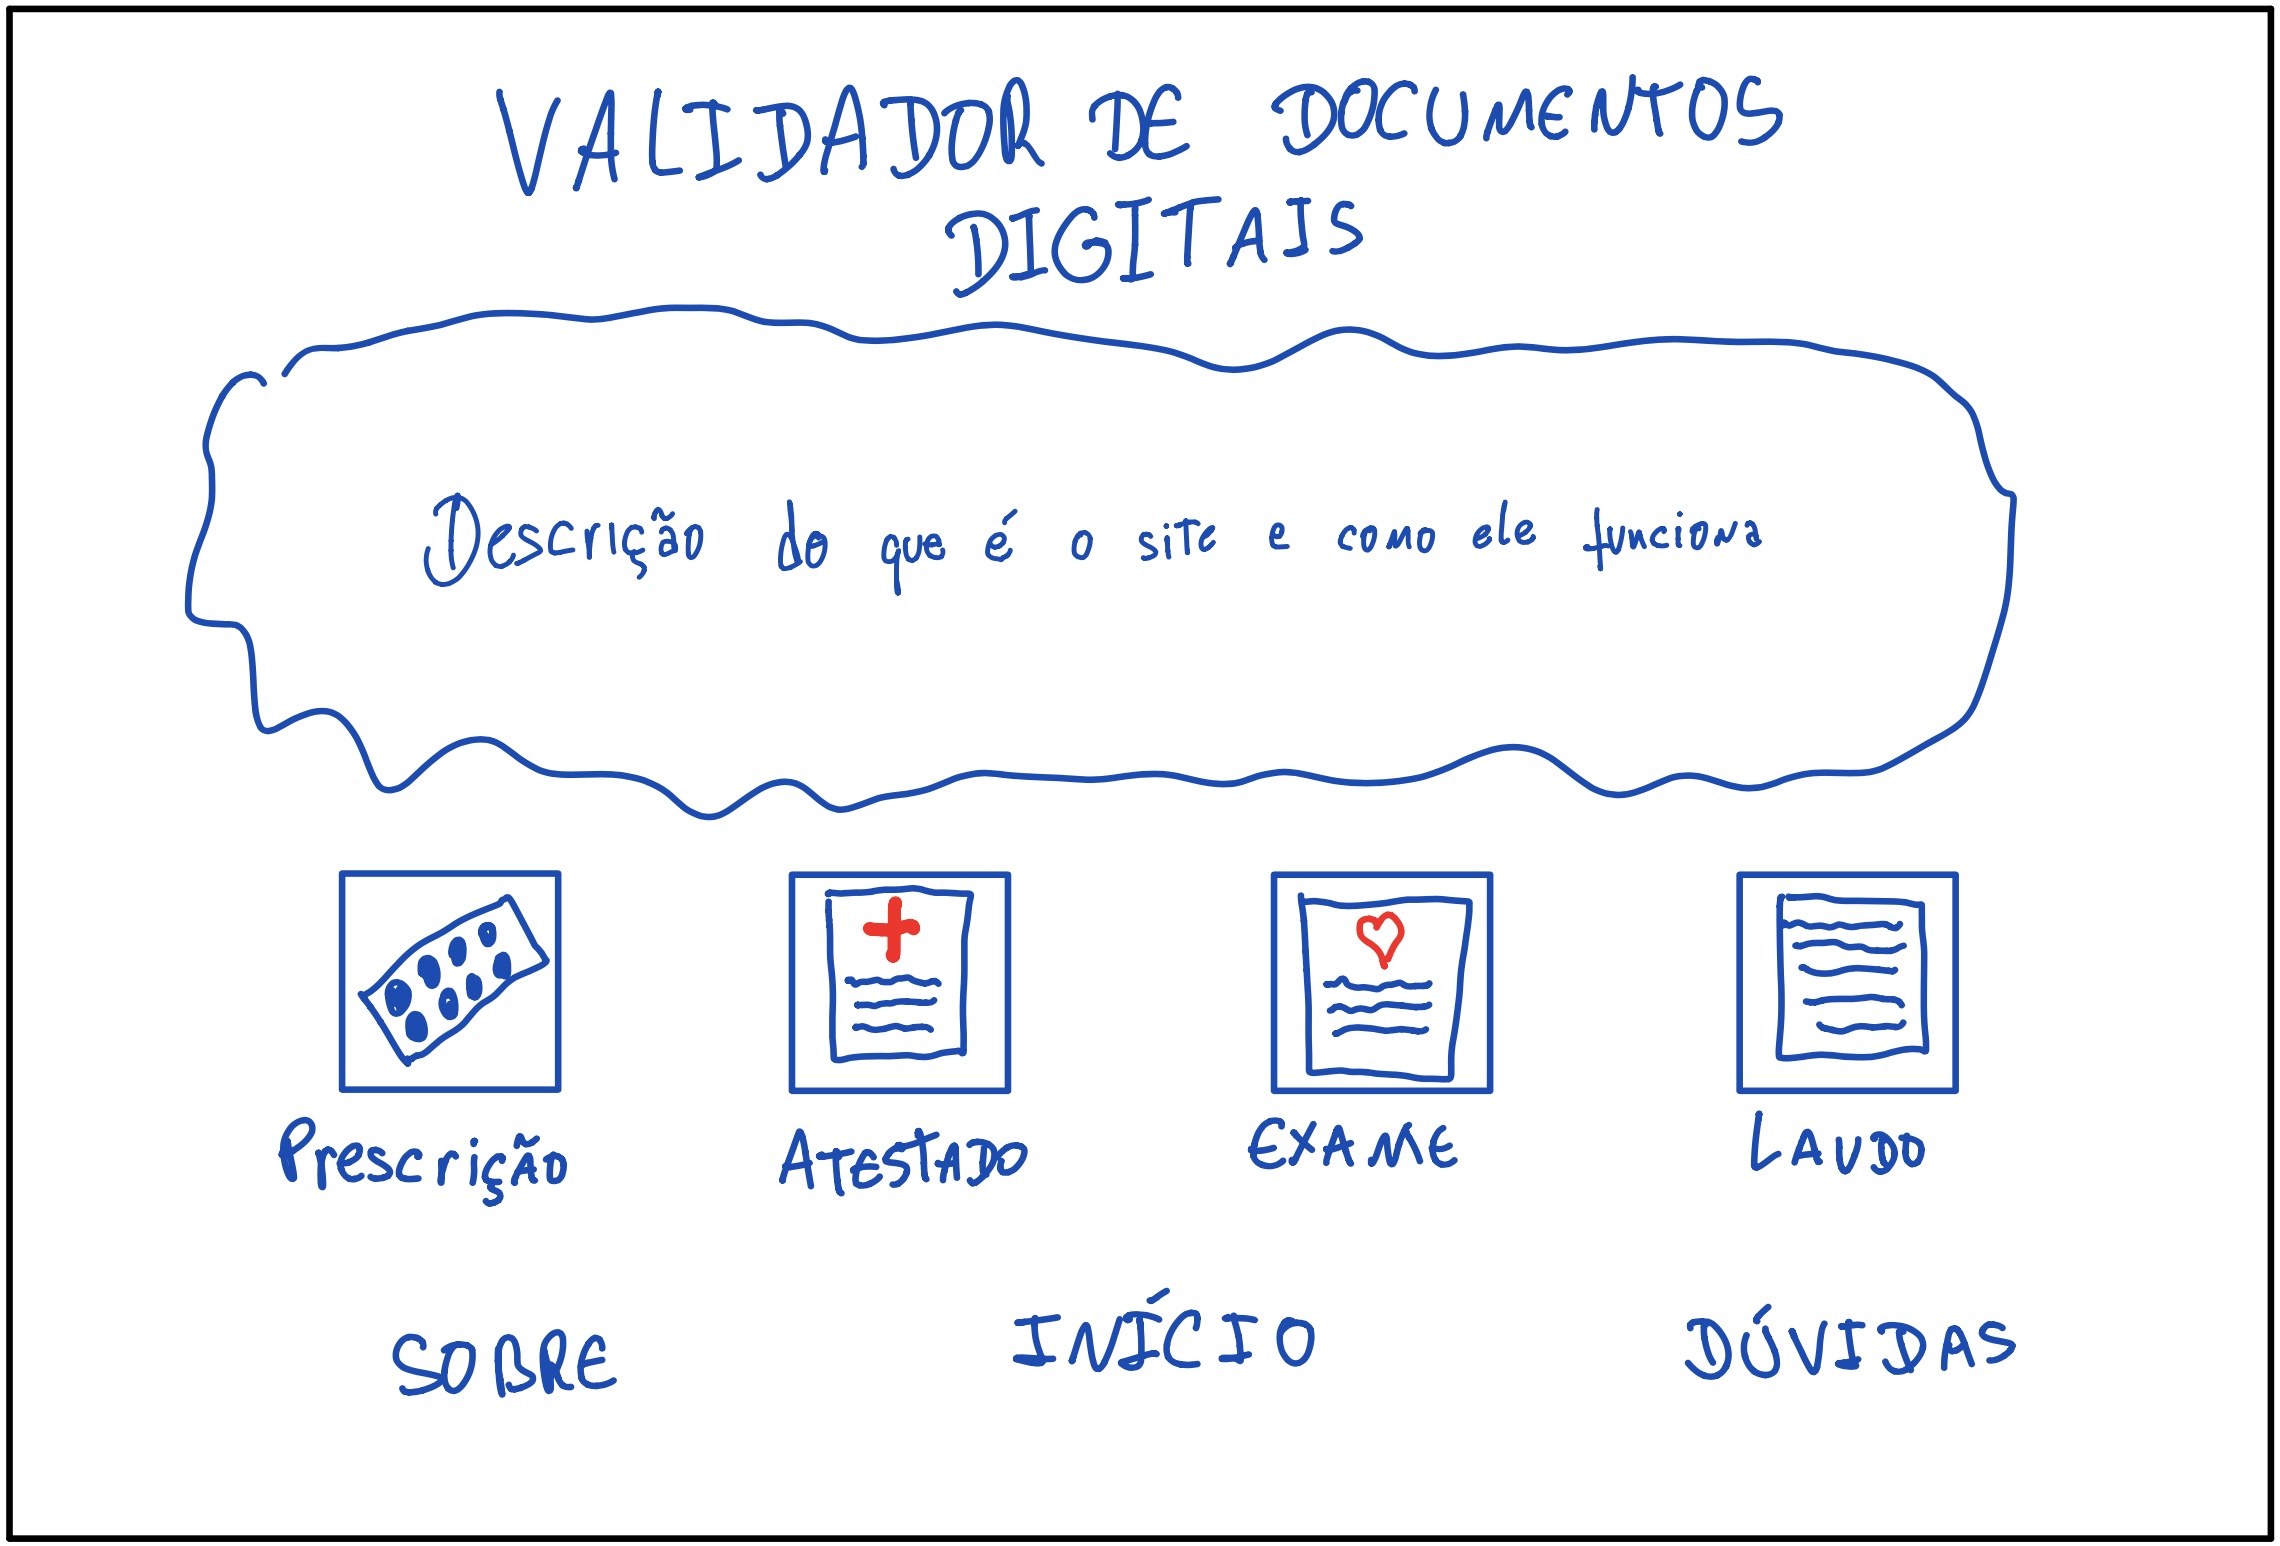 VALIDADOR DE DOCUMENTOS
DIGITAIS
Descrição do que é o site e como ele funciona
Prescrição ATESTADO EXAME LAUDO
SOBRE INÍCIO DÚVIDAS